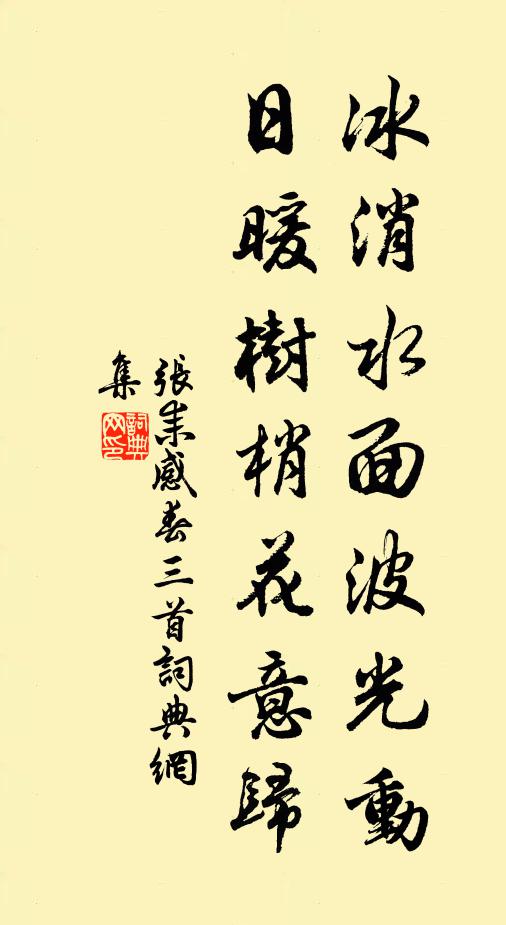 冰消水面波光動
日暖樹梢花意歸
張耒感春三首詞典網
集
詞典
网印